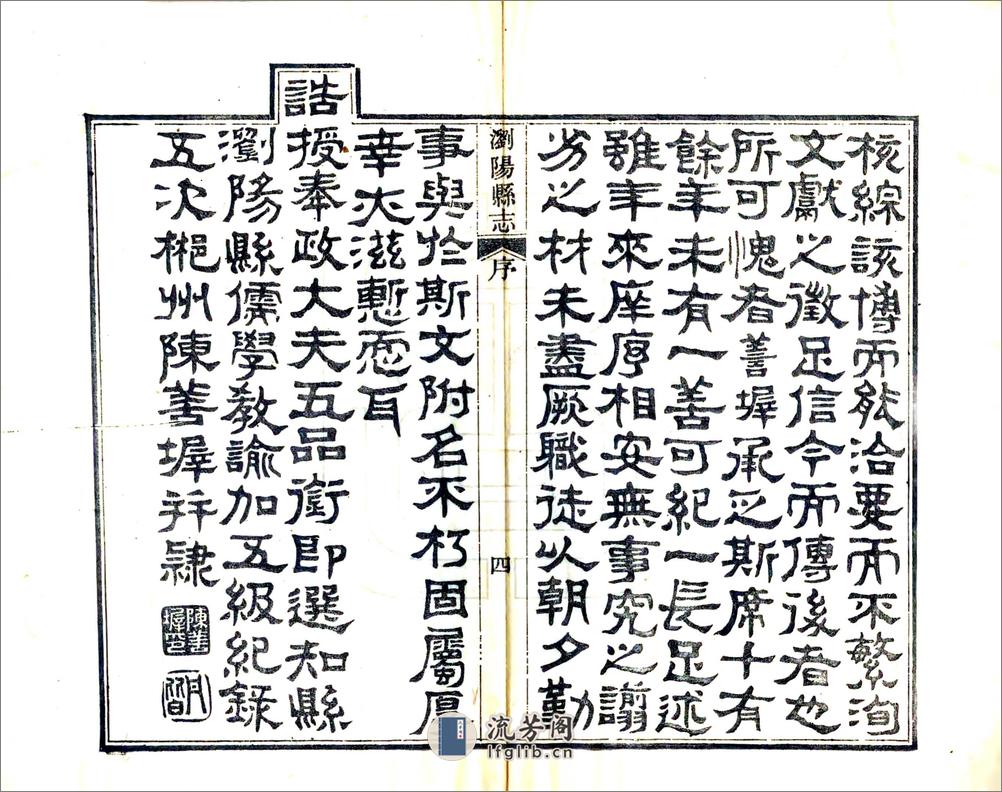 核綜該博而能洽要而不繁洵
文獻之徵足信今而傳後者也
所可愧者善墀承乏斯席十有
餘年未有一善可紀一長足述
雖年來庠序相安無事究之謭
劣之材未盡厥職徒以朝夕勤
瀏陽縣志 序 四
事與於斯文附名不朽固屬厚
幸亦滋慙恧耳
誥授奉政大夫五品銜即選知縣
瀏陽縣儒學教諭加五級紀錄
五次郴州陳善墀并隸
陳善墀印
流芳阁
lfglib.cn